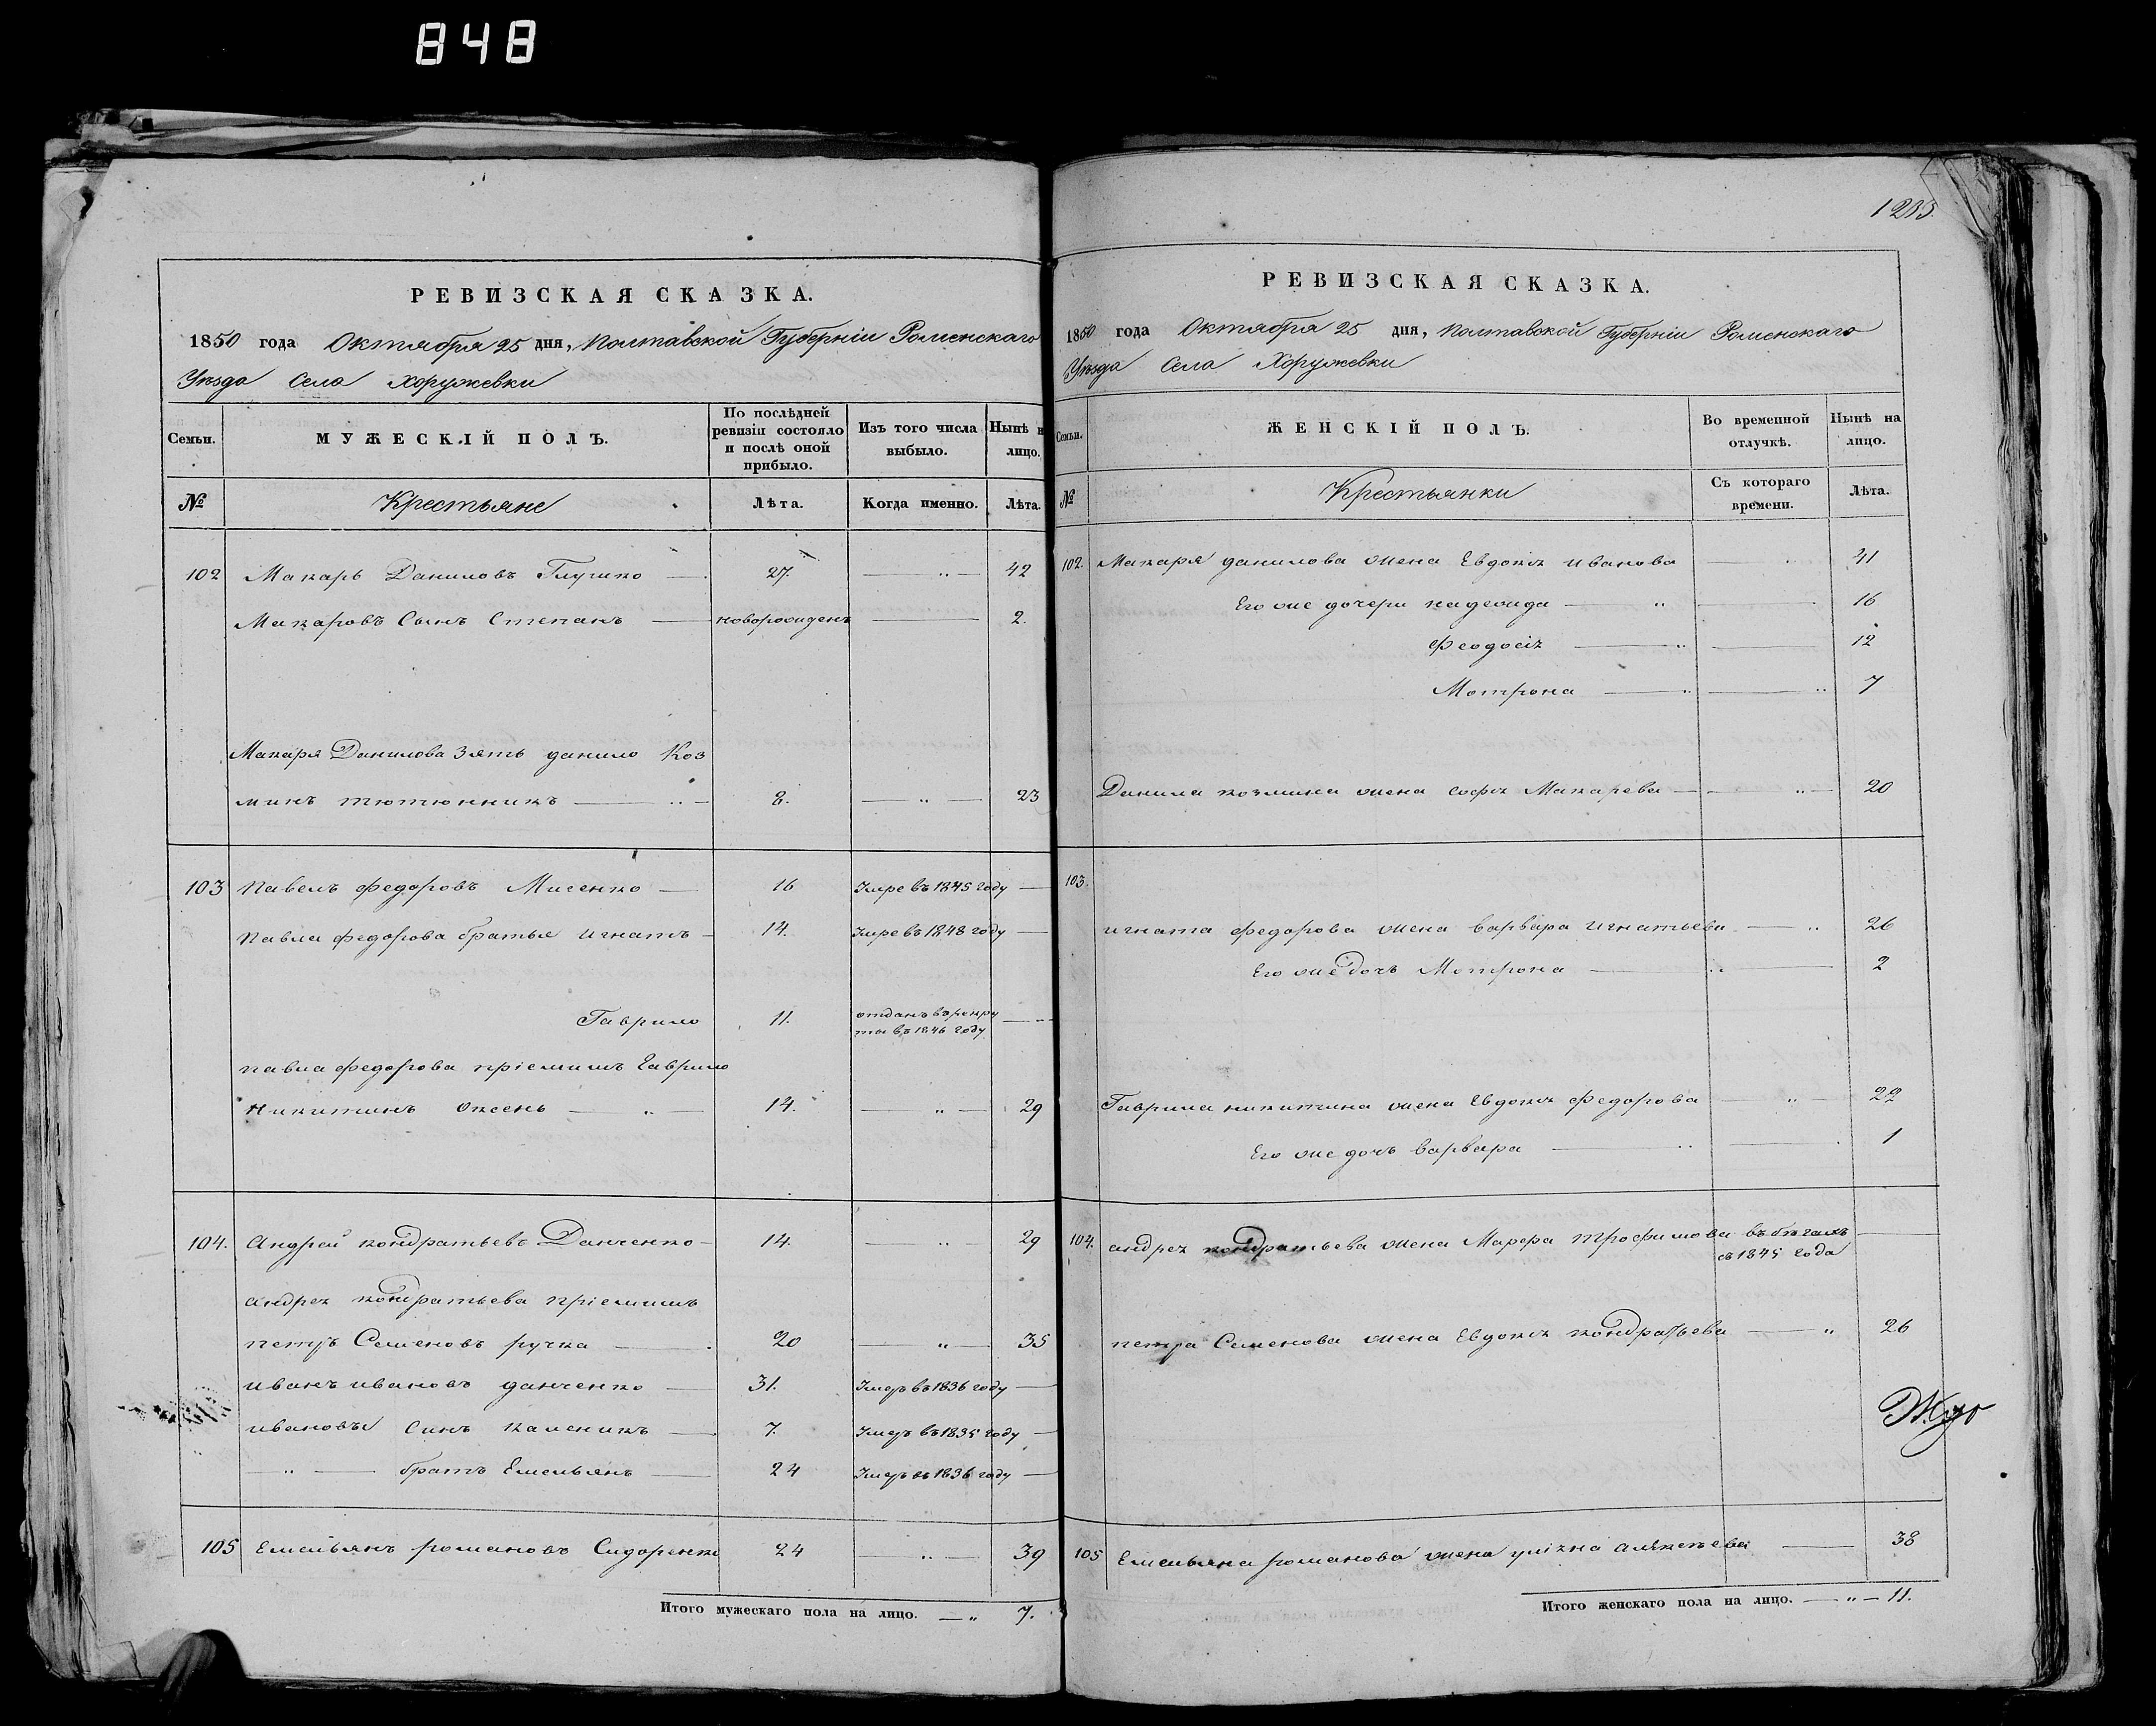 848
1283.
РЕВИЗСКАЯ СКАЗКА.
1850 года Октября 25 дня, Полтавской Губерніи Роменскаго
Уѣзда Села Хоружевки
Семьи. МУЖЕСКІЙ ПОЛЪ. По послѣдней ревизіи состояло и послѣ оной прибыло. Изъ того числа выбыло. Нынѣ на лицо.
№ Крестьяне Лѣта. Когда именно. Лѣта.
102 Макаръ Даниловъ Глушко — 27. — „ — 42
Макаровъ Сынъ Степанъ — новорожденъ — 2.
Макаря Данилова Зять данило Коз
минъ тютюнникъ — 8. — „ — 23
103 Павелъ федоровъ Мисенко — 16 Умре въ 1845 году —
Павла федорова братья игнатъ — 14. Умре въ 1848 году —
Гаврило 11. отданъ въ рекру
ты въ 1846 году —
павла федорова пріемышъ Гаврило
Никитинъ Оксень — „ — 14. — „ — 29
104. Андрей кондратьевъ Данченко — 14. — „ — 29
андрея кондратьева пріемышъ
петръ Семеновъ ручка — 20 — „ — 35
иванъ ивановъ данченко — 31. Умеръ въ 1836 году —
ивановы Синъ Каленикъ — 7. Умеръ въ 1835 году —
— „ — братъ Емельянъ — 24 Умеръ въ 1836 году —
105 Емельянъ романовъ Сидоренко 24 — „ — 39
Итого мужескаго пола на лицо. — „ 7.
РЕВИЗСКАЯ СКАЗКА.
1850 года Октября 25 дня, Полтавской Губерніи Роменскаго
Уѣзда Села Хоружевки
Семьи. ЖЕНСКІЙ ПОЛЪ. Во временной отлучкѣ. Нынѣ на лицо.
№ Крестьянки Съ котораго времени. Лѣта.
102. Макаря данилова жена Евдокія иванова — 41
Его же дочери надежда — „ — 16
Феодосія — „ — 12
Мотрона — „ — „ 7
Данила козмина жена софія Макарева — „ — 20
103.
игната федорова жена варвара игнатьева — „ 26
Его же дочь Мотрона — „ — 2
Гаврила никитина жена Евдокія федорова — „ — 22
Его же дочь варвара — „ — 1
104. андрея кондратьева жена Марфа трофимова въ бѣгахъ
съ 1845 года —
петра Семенова жена Евдокія кондратьева — „ 26
105 Емельяна романова жена уліяна алѣксѣева — 38
Итого женскаго пола на лицо. — „ — 11.